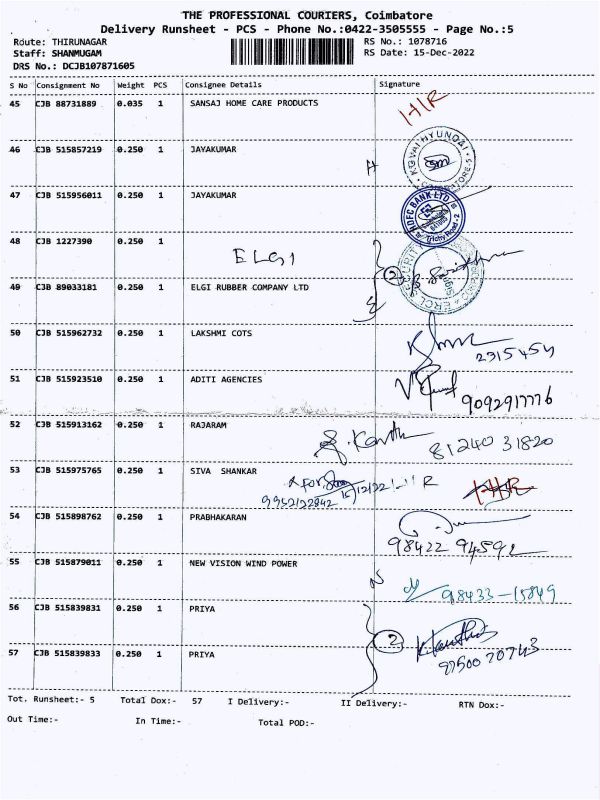 THE PROFESSIONAL COURIERS, Coimbatore
Delivery Runsheet - PCS - Phone No.:0422-3505555 - Page No.:5
Route: THIRUNAGAR RS No.: 1078716
Staff: SHANMUGAM RS Date: 15-Dec-2022
DRS No.: DCJB107871605
S No Consignment No Weight PCS Consignee Details Signature
45 CJB 88731889 0.035 1 SANSAJ HOME CARE PRODUCTS
46 CJB 515857219 0.250 1 JAYAKUMAR
KOVAI HYUNDAI
47 CJB 515956011 0.250 1 JAYAKUMAR
HDFC BANK LTD
Trichy Road - 2
48 CJB 1227390 0.250 1
ELGI
2
49 CJB 89033181 0.250 1 ELGI RUBBER COMPANY LTD
ERCL SECURITY
50 CJB 515962732 0.250 1 LAKSHMI COTS
2315454
51 CJB 515923510 0.250 1 ADITI AGENCIES
9092917776
52 CJB 515913162 0.250 1 RAJARAM
81240 31820
53 CJB 515975765 0.250 1 SIVA SHANKAR
9952122842 15/12/22
54 CJB 515898762 0.250 1 PRABHAKARAN
98422 94592
55 CJB 515879011 0.250 1 NEW VISION WIND POWER
N 98433-15849
56 CJB 515839831 0.250 1 PRIYA
2
57 CJB 515839833 0.250 1 PRIYA
97500 70743
Tot. Runsheet:- 5 Total Dox:- 57 I Delivery:- II Delivery:- RTN Dox:-
Out Time:- In Time:- Total POD:-